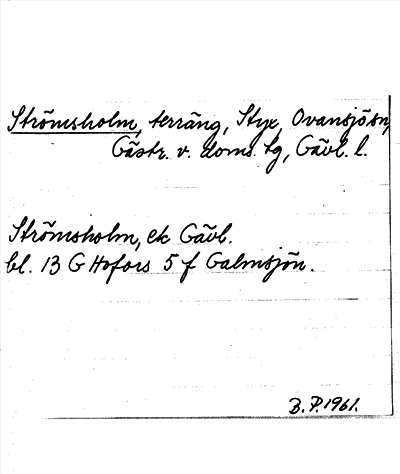 Strömsholm, terräng, Stye, Ovansjö sn,
Gästr. v. doms. tg, Gävl. l.
Strömsholm, ek Gävl.
bl. 13 G Hofors 5 f Galmsjön.
B.P. 1961.